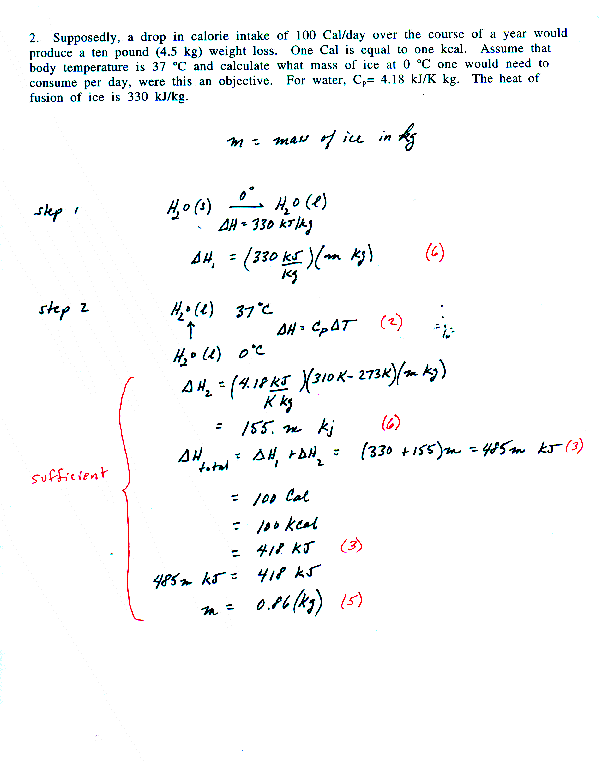 2. Supposedly, a drop in calorie intake of 100 Cal/day over the course of a year would
produce a ten pound (4.5 kg) weight loss. One Cal is equal to one kcal. Assume that
body temperature is 37 °C and calculate what mass of ice at 0 °C one would need to
consume per day, were this an objective. For water, Cp= 4.18 kJ/K kg. The heat of
fusion of ice is 330 kJ/kg.
m = mass of ice in kg
step 1 H₂O (s) 0° → H₂O (l)
ΔH = 330 kJ/kg
ΔH₁ = (330 kJ/kg)(m kg) (6)
step 2 H₂O (l) 37°C
↑ ΔH = CpΔT (2)
H₂O (l) 0°C
ΔH₂ = (4.18 kJ/K kg)(310K - 273K)(m kg)
= 155. m kj (6)
ΔH total = ΔH₁ + ΔH₂ = (330 + 155)m = 485m kJ (3)
sufficient
= 100 Cal
= 100 kcal
= 418 kJ (3)
485m kJ = 418 kJ
m = 0.86 (kg) (5)